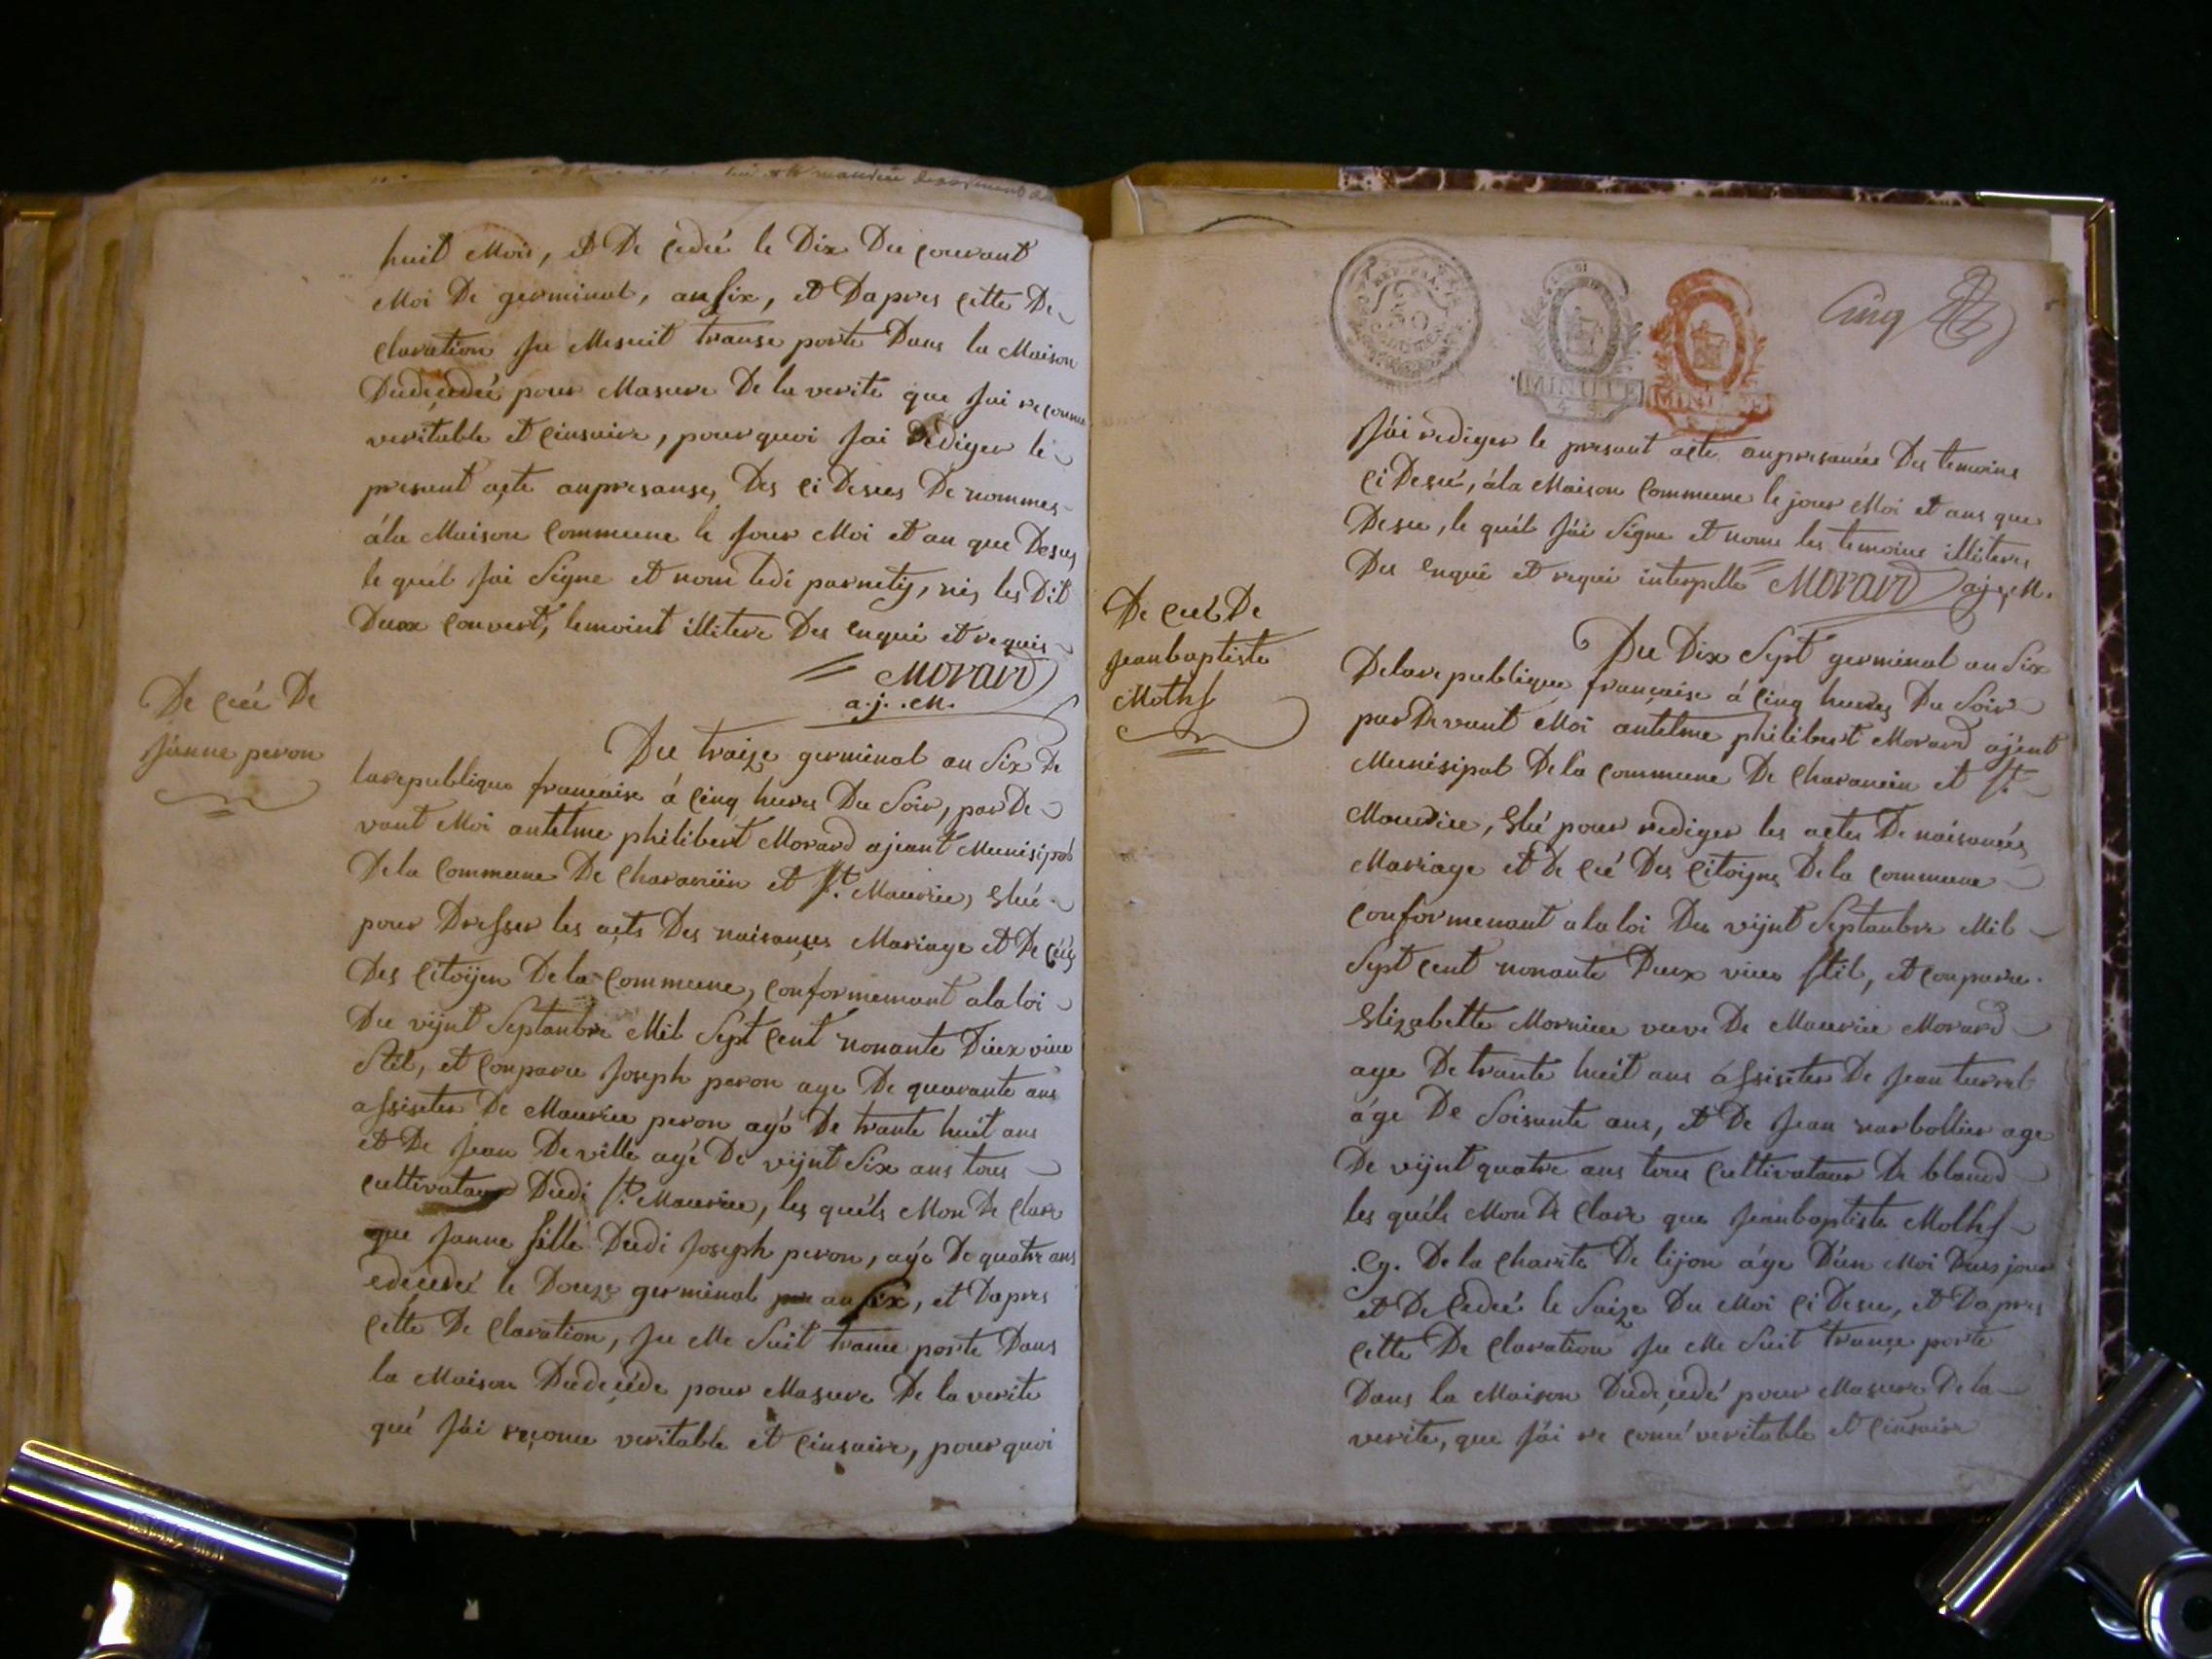 huit Mois, et De cedeé le Dix Du courant
Moi De germinal, an six, et Dapres cette De
claration Je Mesuit transe porte Dans la Maison
Dudecedeé pour Masure De la verite que Jai reconnu
veritable et cinsaire, pourquoi Jai Rediger le
present acte anpresanse, Des ci Desus De nommes
ála Maison Commune le Jour Moi et an que Desus
le quel Jai Signe et nom ledi parnetij, nis les Dit
Deux Couvert, temoint illitere Des enqui et requis
Morard
a.j. .M.
De ceé De
Jánne peron
Du traize germinal an Six De
larepublique francaise á cinq hures Du Soir, par De
vant Moi antelme philibert Morard ajeant Munisipal
De la Commune De Charancin et St. Maurice, Elué
pour Dresser les acts Des naisanses Mariage et De ceés
Des citoijen De la Commune, conformemant ala loi
Du vijnt Septanbre Mil Sept cent nonante Deux vieu
Stil, et Conparu Joseph peron age De quarante ans
assisites De Maurice peron agé De trante huit ans
et De Jean Deville agé De vijnt Six ans tous
cultivataur Dudi St. Maurice, les quéls Mon De clare
que Janne fille Dudi Joseph peron, agé De quatre ans
edecedeé le Douze germinal an six, et Dapres
cette De claration, Je Me Suit transe porte Dans
la Maison Dudecéde pour Masure De la verite
qué Jái reconu veritable et cinsaire, pourquoi
REP. FRA.
50
MINUTE
MINUTE
Cinq
Jái rediger le presant acte anpresance Des temoins
ci Desú, ála Maison Commune le jour Moi et ans que
Desu, le quél Jái Signe et nome les temoins illiteres
Des enqui et requi interpelle Morard aj. M.
De ceé De
Jeanbaptiste
Moths
Du Dix Sept germinal an Six
Delare publique française á cinq hures Du Soir
par Devant Moi antelme philibert Morard ajent
Munisipal De la Commune De Charancin et St.
Maurice, Elué pour rediger les actes De náisances
Mariage et De ceé Des citoijns De la Commune
conformenant a la loi Du vijnt Septanbre Mil
Sept cent nonante Deux vieu Stil, et conparu
Elizabette Mornieu veuve De Maurice Morard
age De trante huit ans ássisites De Jean turrel
áge De Soisante ans, et De Jean narbollier age
De vijnt quatre ans tous Cultivataur De blanod
les quéls Mon De clare que Jeanbaptiste Moths
De la charite De lijon áge Dún Moi jour
et De cedeé le Saize Du Moi ci Desu, et Dapres
cette De claration Je Me Suit transe porte
Dans la Maison Dudecedé pour Masure De la
verite, que Jái re conú veritable et cinsaire